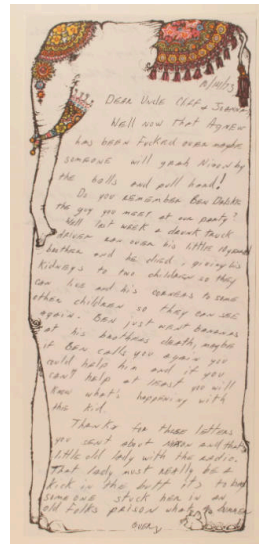 10/10/73
Dear Uncle Cliff & Joanna
Well now that Agnew
has been fucked over maybe
someone will grab Nixon by
the balls and pull hard!
Do you remember Ben Dalske
the guy you meet at our party?
Well last week a drunk truck
driver ran over his little 10 year
brother and he died, giving his
kidneys to two children so they
can live and his corneas to some
other children so they can see
again. Ben just went bananas
at his brothers death, maybe
if Ben calls you again you
could help him and if you
can't help at least you will
know what's happening with
the kid.
Thanks for those letters
you sent about Nixon and that
little old lady with the radio.
That lady must really be a
kick in the butt its to bad
someone stuck her in an
old folks prison what a bummer
over